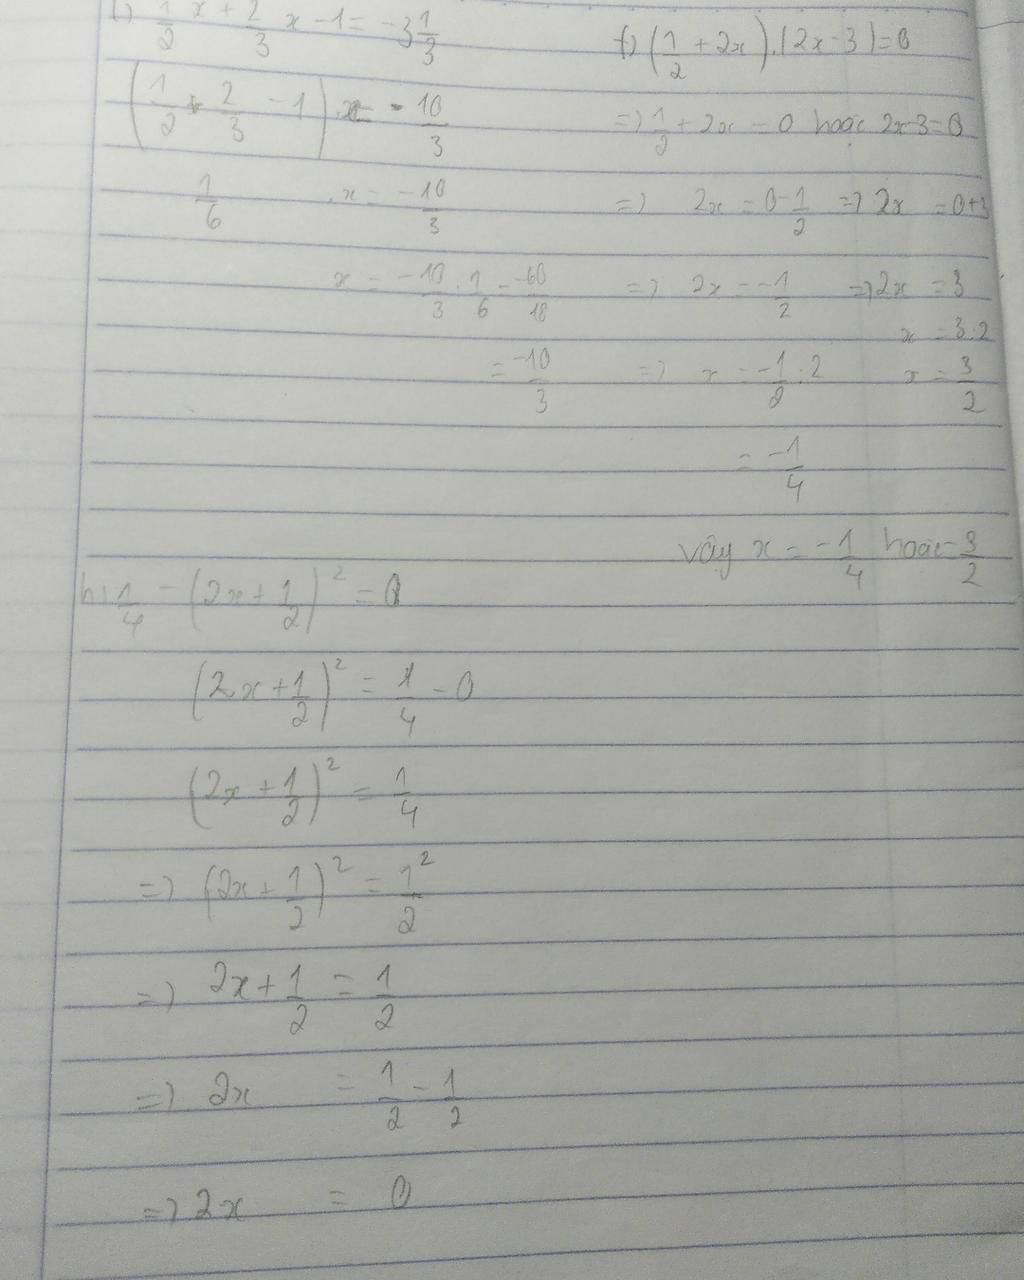 1/2 x + 2/3 x - 1 = -3 1/3
(1/2 + 2/3 - 1) . x = - 10/3
1/6 . x = -10/3
x = -10/3 . 1/6 = -60/18
= -10/3
f) (1/2 + 2x) . (2x - 3) = 0
=> 1/2 + 2x = 0 hoặc 2x - 3 = 0
=> 2x = 0 - 1/2 => 2x = 0 + 3
=> 2x = -1/2 => 2x = 3
x = 3 : 2
=> x = -1/2 : 2 x = 3/2
= -1/4
Vậy x = -1/4 hoặc 3/2
h) 1/4 - (2x + 1/2)² = 0
(2x + 1/2)² = 1/4 - 0
(2x + 1/2)² = 1/4
=> (2x + 1/2)² = 1²/2
=> 2x + 1/2 = 1/2
=> 2x = 1/2 - 1/2
=> 2x = 0